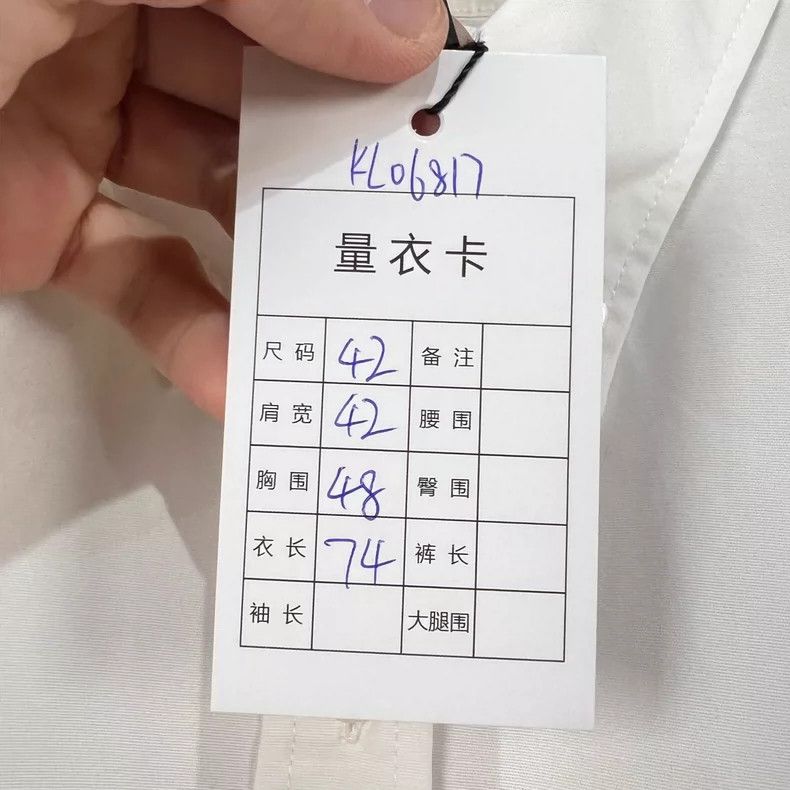 KL06817
量衣卡
尺码 42 备注
肩宽 42 腰围
胸围 48 臀围
衣长 74 裤长
袖长 大腿围